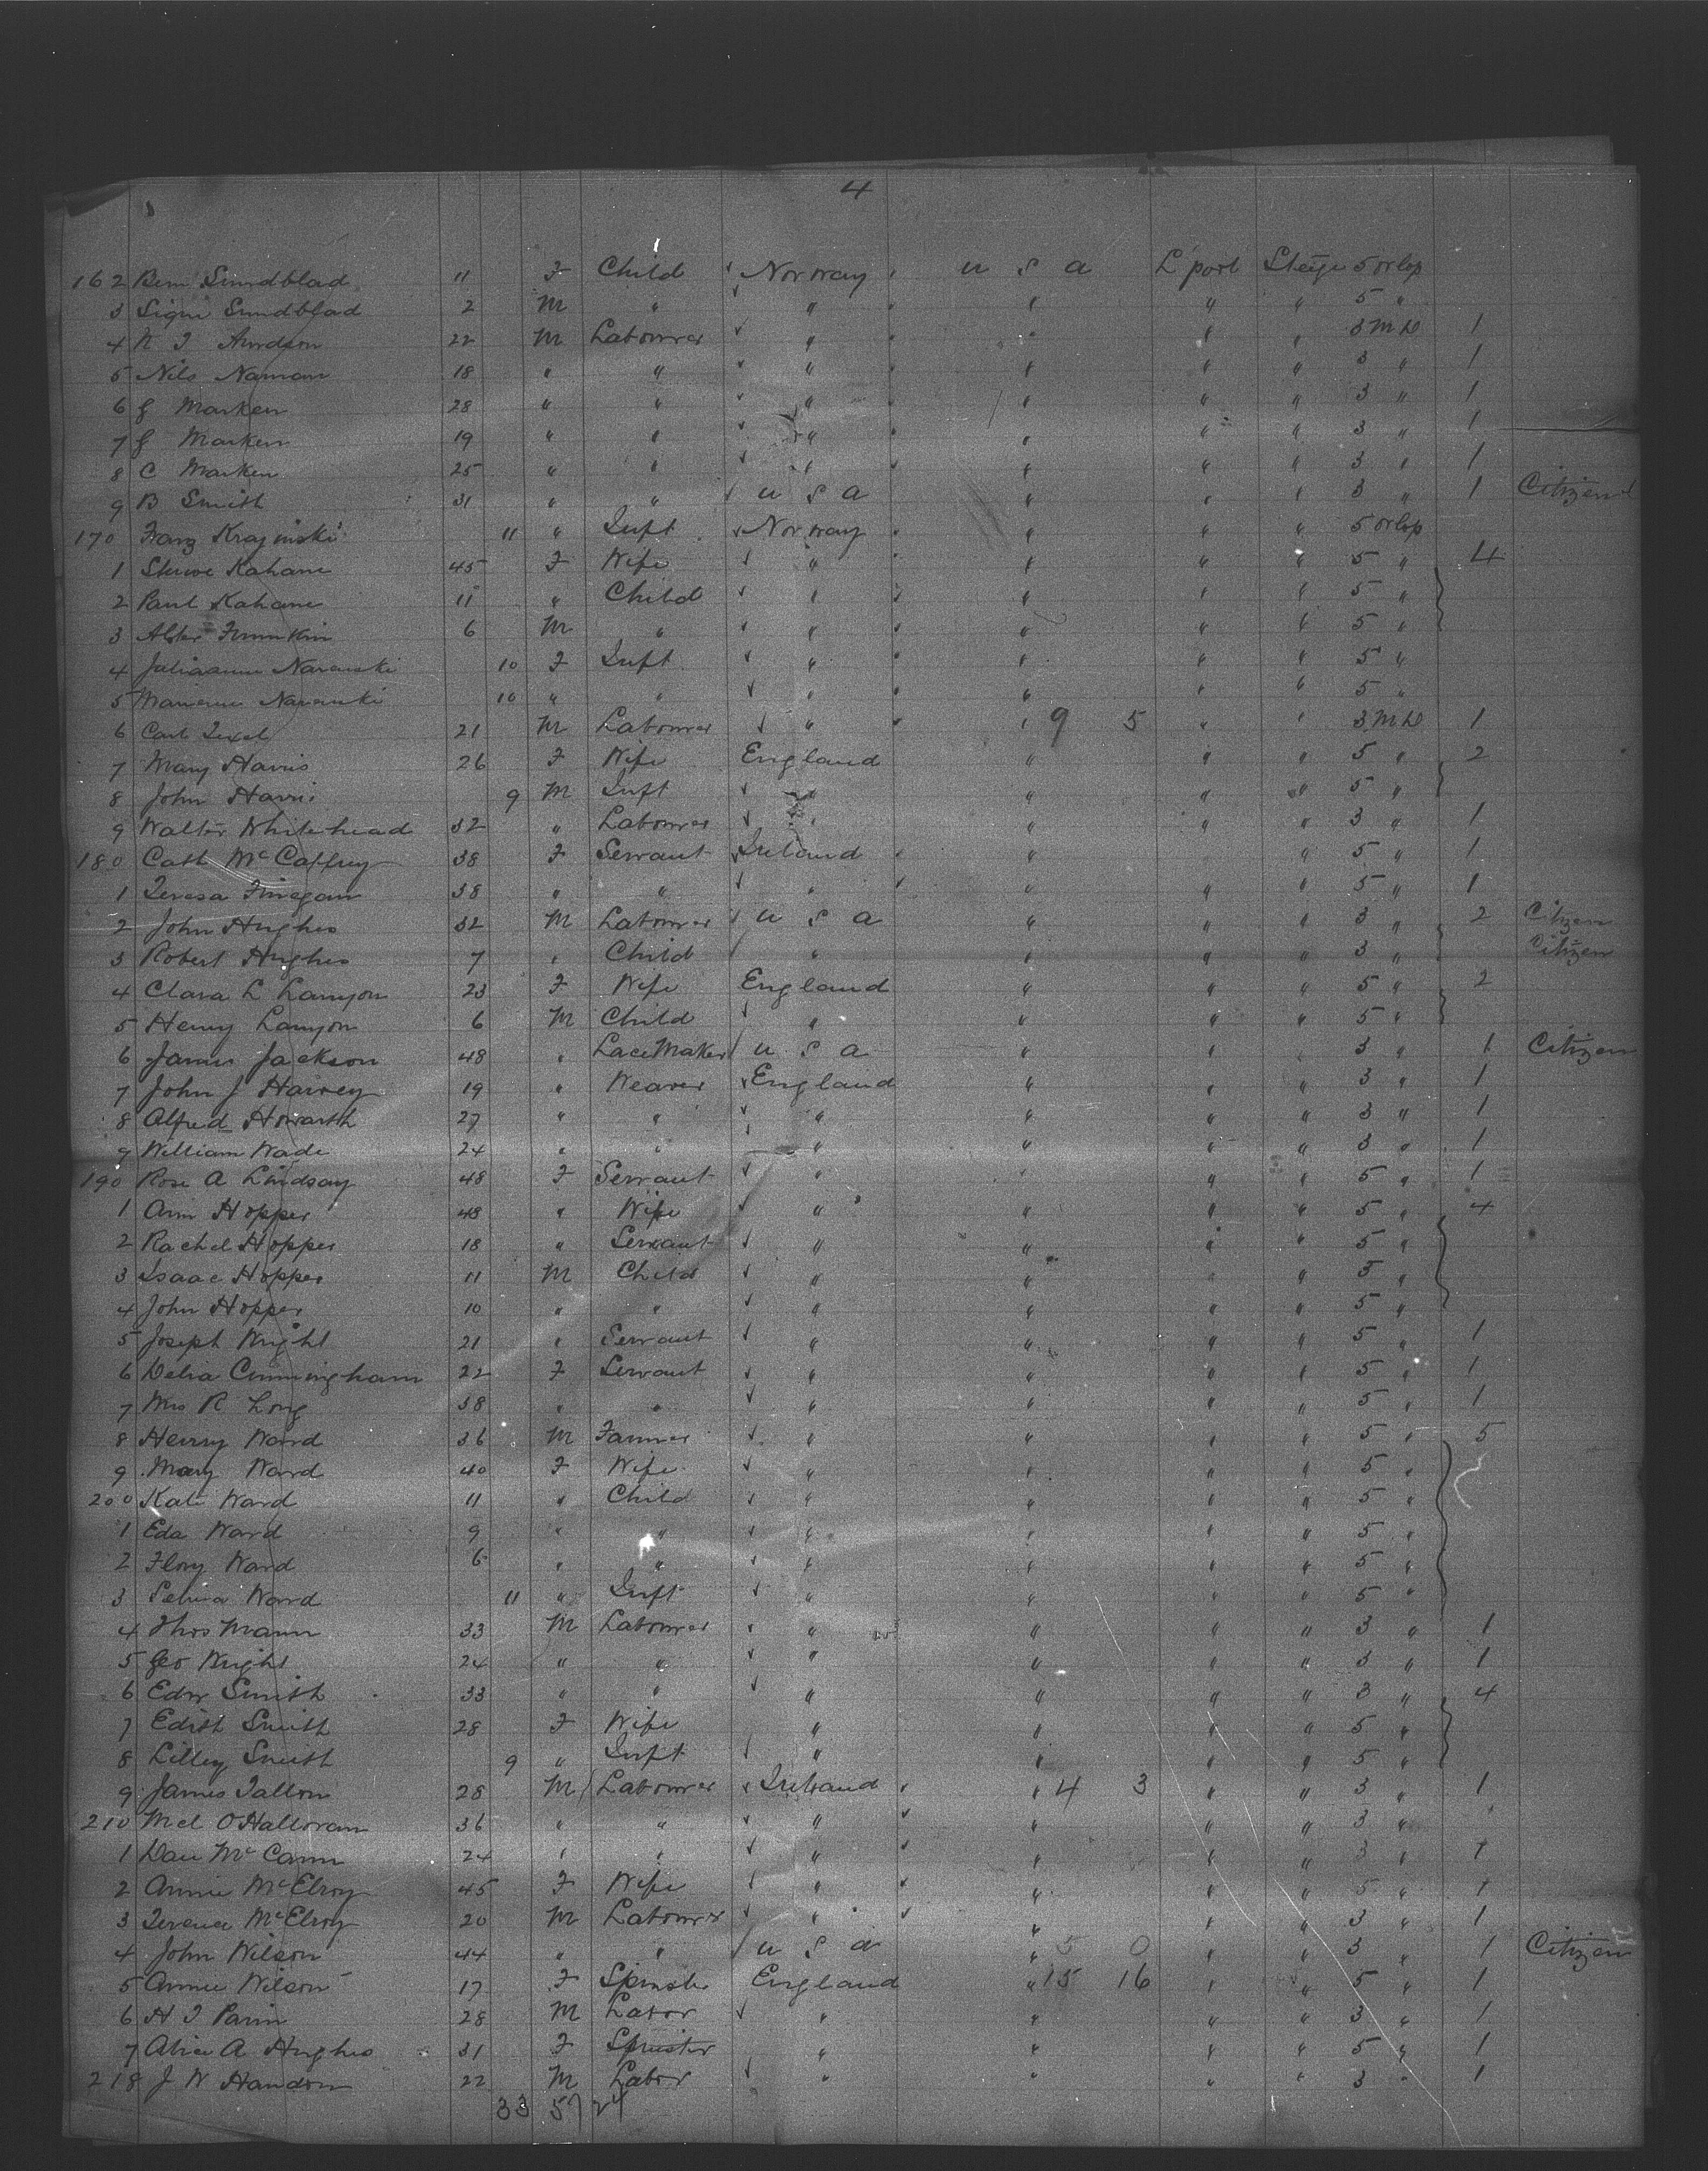 4
162 Bern Sundblad 11 F Child Norway U S A L'pool Steige 5 orlop
3 Signi Sundblad 2 M " " " " " 5 "
4 N J 22 M Labourer " " " " 3 M D 1
5 Nils Naman 18 " " " " " " 3 " 1
6 J Marken 28 " " " " " " 3 " 1
7 J Marken 19 " " " " " " 3 " 1
8 C Marken 25 " " " " " " 3 " 1
9 B Smith 31 " " U S A " " " 3 " 1 Citizen
170 Franz Krajinski 11 " Inft Norway " " " 5 orlop
1 Kahane 45 F Wife " " " " 5 " 4
2 Paul Kahane 11 " Child " " " " 5 "
3 Alter Frumkin 6 M " " " " " 5 "
4 Juliaanne Naranski 10 F Inft " " " " 5 "
5 Naranski 10 " " " " " " 5 "
6 Carl 21 M Labourer " " 9 5 " " 3 M D 1
7 Mary Harris 26 F Wife England " " " 5 " 2
8 John Harris 9 M Inft " " " " 5 "
9 Walter Whitehead 32 " Labourer " " " " 3 " 1
180 Cath McCaffrey 38 F Servant Ireland " " 5 " 1
1 Teresa Finegan 38 " " " " " " 5 " 1
2 John Hughes 32 M Labourer U S A " " " 3 " 2 Citizen
3 Robert Hughes 7 " Child " " " " 3 " Citizen
4 Clara L Lanyon 23 F Wife England " " " 5 " 2
5 Henry Lanyon 6 M Child " " " " 5 "
6 James Jackson 48 " LaceMaker U S A " " " 3 " 1 Citizen
7 John J Harvey 19 " Weaver England " " " 3 " 1
8 Alfred Howarth 27 " " " " " " 3 " 1
9 William Wade 24 " " " " " " 3 " 1
190 Rose A Lindsay 48 F Servant " " " " 5 " 1
1 Ann Hopper 48 " Wife " " " " 5 " 4
2 Rachel Hopper 18 " Servant " " " " 5 "
3 Isaac Hopper 11 M Child " " " " 5 "
4 John Hopper 10 " " " " " " 5 "
5 Joseph Wright 21 " Servant " " " " 5 " 1
6 Delia Cunningham 22 F Servant " " " " 5 " 1
7 Mrs R Long 38 " " " " " " 5 " 1
8 Henry Ward 36 M Farmer " " " " 5 " 5
9 Mary Ward 40 F Wife " " " " 5 "
200 Kate Ward 11 " Child " " " " 5 "
1 Eda Ward 9 " " " " " " 5 "
2 Flory Ward 6 " " " " " " 5 "
3 Selina Ward 11 " Inft " " " " 5 "
4 Thos Mann 33 M Labourer " " " " 3 " 1
5 Geo Wright 24 " " " " " " 3 " 1
6 Edw Smith 33 " " " " " " 3 " 4
7 Edith Smith 28 F Wife " " " " 5 "
8 Lilley Smith 9 " Inft " " " " 5 "
9 James Tallon 28 M Labourer Ireland " 4 3 " " 3 " 1
210 Mcl O'Halloran 36 " " " " " " 3 "
1 Dan McCann 24 " " " " " " 3 " 1
2 Annie McElroy 45 F Wife " " " " 5 " 1
3 Terence McElroy 20 M Labourer " " " " 3 " 1
4 John Wilson 44 " " U S A " 5 0 " " 3 " 1 Citizen
5 Annie Wilson 17 F Spinster England " 15 16 " " 5 " 1
6 H J Parin 28 M Labor " " " " 3 " 1
7 Alice A Hughes 31 F Spinster " " " " 5 " 1
218 J W Handson 22 M Labor " " " " 3 " 1
33 57 24